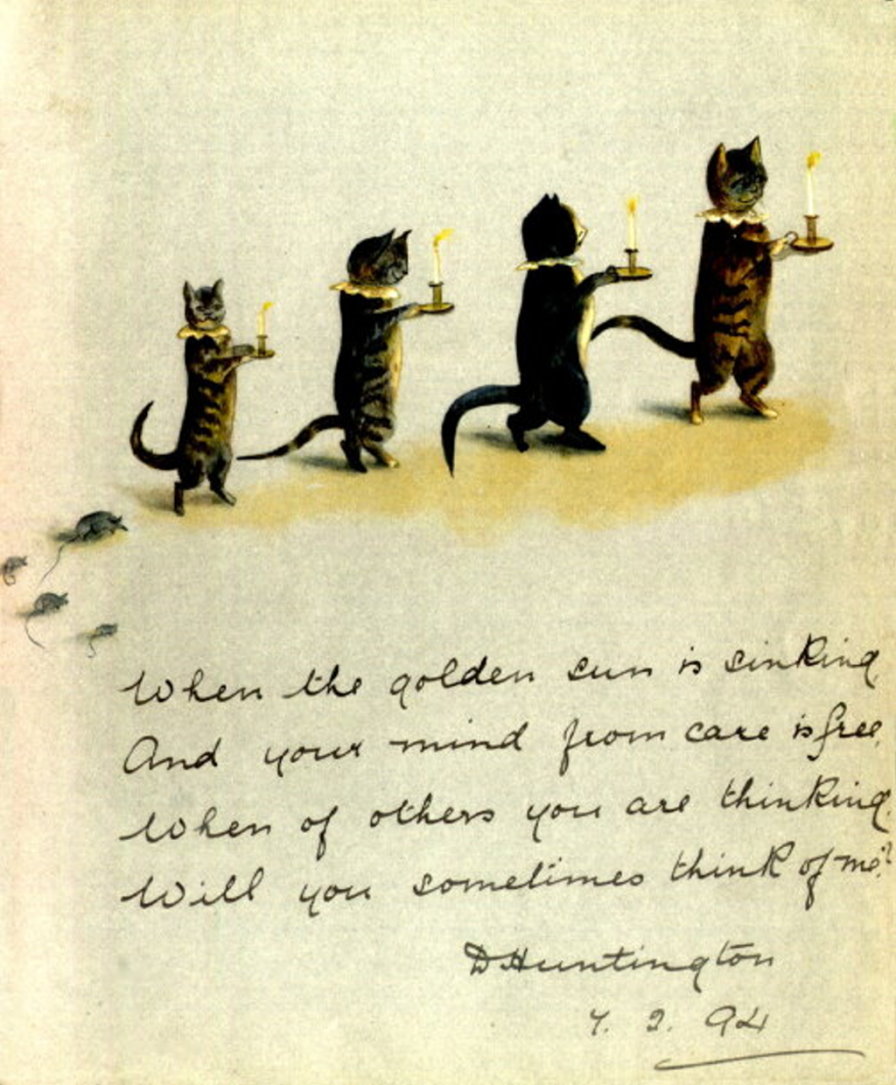 When the golden sun is sinking,
And your mind from care is free,
When of others you are thinking,
Will you sometimes think of me?
D Huntington
7. 2. 94